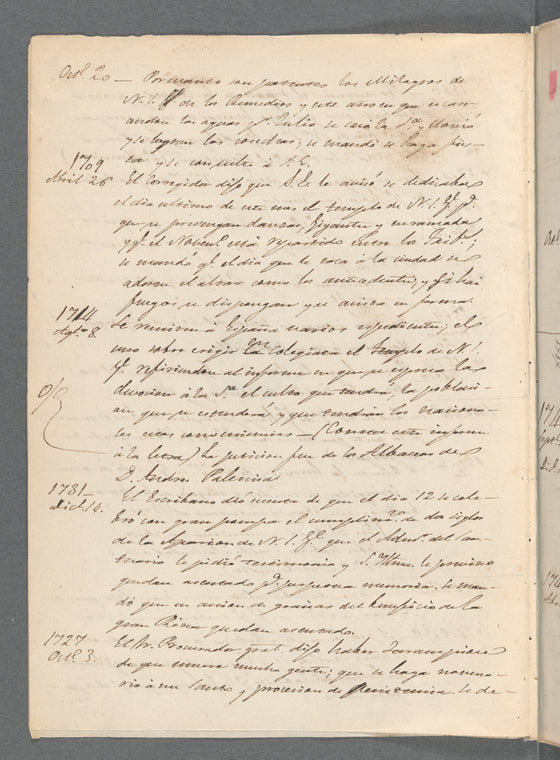 Octe. 20 — Por cuanto son patentes los Milagros de
N. S. de los Remedios y este año en que escasearon
las aguas pr. Julio se trajo la Sra. y llovió
y se logran las siembras; se mandó se haga fiesta
y se consulte á S. E.
1709
Abril 26 El Corregidor dijo que S. E. le avisó se dedicaba
el dia ultimo de este mes el templo de N. S. G. pa.
que se prevengan danzas, Gigantes y enramada
y qe. el Noven. está repartido entre los
se mandó qe. el dia que le toca á la ciudad se
adorne el altar como los antecedentes, y si hai
fuegos se dispongan y se avise en forma.
1714
Agto. 8. Se remiten á España varios expedientes; el
uno sobre erigir en Colegiata el templo de N. S.
G. refiriendose al informe en que se expresa la
devocion á la Sra. el culto que tendrá, la poblacion
que se estenderá y que tendrán los naturales
otras conveniencias — (Consta este informe
á la letra) La peticion fue de los Albaceas de
D. Andres Palencia
1731 —
Dice. 14. El Escribano dió cuenta de que el dia 12 se celebró
con gran pompa el cumplimto. de dos siglos
de la Aparicion de N. S. G. que el Admor. del Santuario
le pidió testimonio y S. Illma. le previno
quedara asentado pa. perpetua memoria. Se mandó
que en accion de gracias del beneficio de la
gran Reina quedara asentado.
1727
Octe. 3. El Sr. Procurador gral. dijo haber Sarampion
de que muere mucha gente; que se haga novenario
á un Santo y procesion de Penitencia. Se de-